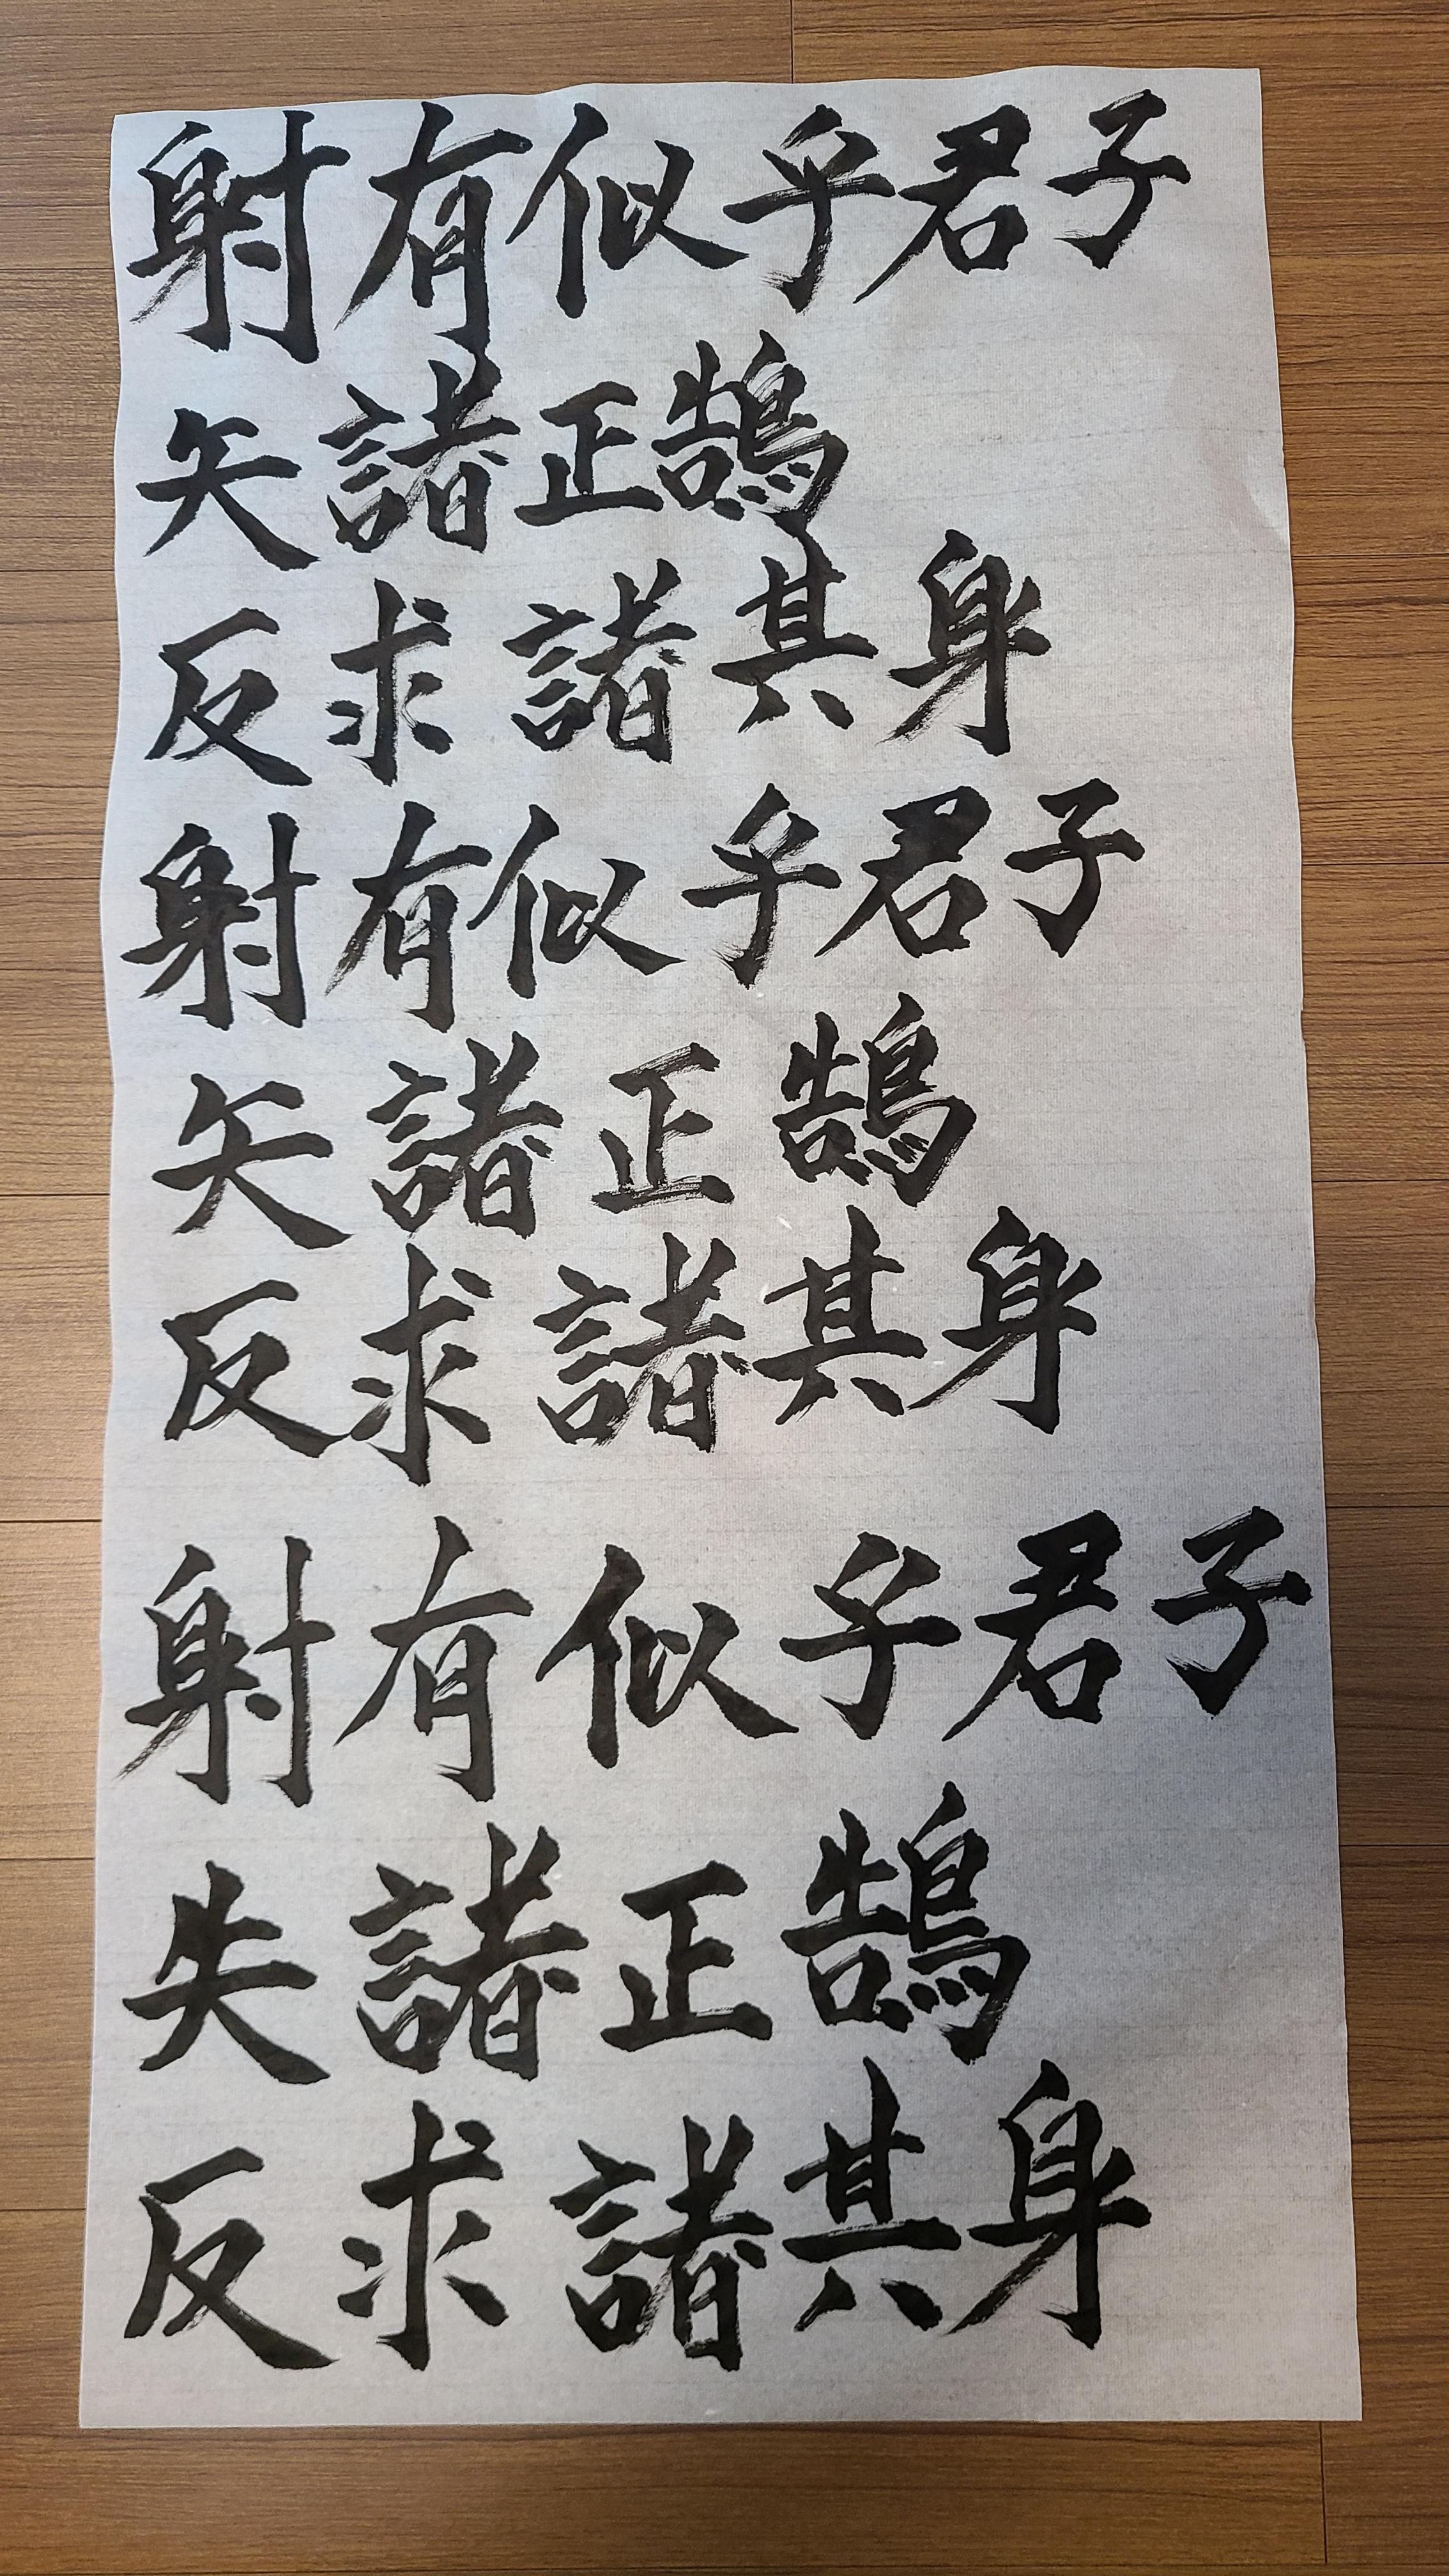 射有似乎君子
矢諸正鵠
反求諸其身
射有似乎君子
矢諸正鵠
反求諸其身
射有似乎君子
失諸正鵠
反求諸其身